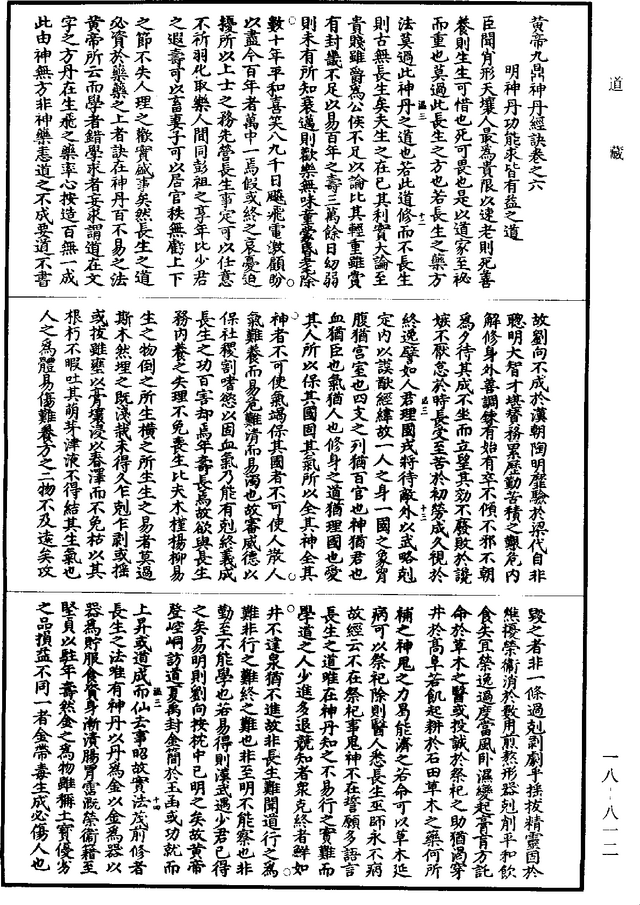 道藏
一八·八一二
黄帝九鼎神丹經訣卷之六
明神丹功能求皆有益之道
臣聞肖形天壤人最為貴限以速老則死善
養則生生可惜也死可畏也是以道家至祕
而重也莫過此長生之方也若長生之藥方
法莫過此神丹之道也若此道修而不長生
則古無長生矣夫生之在已其利實大論至
貴賤雖爵為公侯不足以論比其輕重雖賞
有封畿不足以易百年之壽三萬餘日幼弱
則未有所知衰邁則歡樂無味童蒙昬耄除
數十年平和喜笑八九千日飈飛電激顧盼
以盡今百年者萬中一焉假或終之哀憂迫
擾所以上士之務先營長生事定可以任意
不祈羽化取樂人間同彭祖之享年比少君
之遐壽可以畜妻子可以居官秩無虧上下
之節不失人理之歡實盛事矣然長生之道
必資於藥藥之上者訣在神丹百不易之法
黄帝所云而學者錯學求者妄求謂道在文
字之方丹在生飛之藥率心按造百無一成
此由神無方非神藥恚道之不成要道不書
故劉向不成於漢朝陶明靡驗於梁代自非
聰明大智才堪督務累歷勤苦積之艱危内
解修身外善調鍊有始有卒不傾不邪不朝
為夕待其成不坐而立望其効不廢敗於譏
嫉不厭怠於時長受至苦於初勞成久視於
終逸譬如人君理國戎將待敵外以武略剋
定内以謨猷經緯故一人之身一國之象胷
腹猶宮室也四支之列猶百官也神猶君也
血猶臣也氣猶人也修身之道猶理國也愛
其人所以保其國固其氣所以全其神全其
神者不可使氣竭保其國者不可使人散人
氣難養而易危難清而易濁也故審威德以
保社稷割嗜慾以固血氣乃能有剋終義成
長生之功百害却焉年壽長焉故欲與長生
務内養之失理不免喪生比夫木槿楊柳易
生之物倒之所生横之所生生之易者莫過
斯木然埋之既淺栽未得久乍剋乍剥或摇
或拔雖壅以膏壤浸以春澤而不免枯以其
根朽不暇吐其萌芽津液不得結其生氣也
人之為體易傷難養方之二物不及遠矣攻
毁之者非一條過剋剥劇乎摇拔精靈困於
煎擾榮衞消於數用煎熬形器剋削平和飲
食失宜榮逸過度當風卧濕變起膏肓方託
命於草木之醫或投誠於祭祀之助猶渴穿
井於高阜若飢起耕於石田草木之藥何所
補之神鬼之力曷能濟之若命可以草木延
病可以祭祀除則醫人悉長生巫師永不病
故經云不在祭祀事鬼神不在誓願多語言
長生之道唯在神丹知之不易行之實難而
學道之人少進多退競知者衆克終者鮮如
井不達泉猶不進故非長生難聞道行之為
難非行之難終之難也非至明不能察也非
勤至不能學也若易得則漢武遇少君已得
之矣易明則劉向按枕中已明之矣故黄帝
登崆峒訪道夏禹封金簡於玉函或功就而
上昇或道成而仙去事昭故實法茂前修者
長生之法唯有神丹以丹為金以金為器以
器為貯服食資身漸漬腸胃霑溉榮衞藉至
堅貞以駐年壽然金之為物雖稱土寳優劣
之品損益不同一者金帶毒生成必傷人也